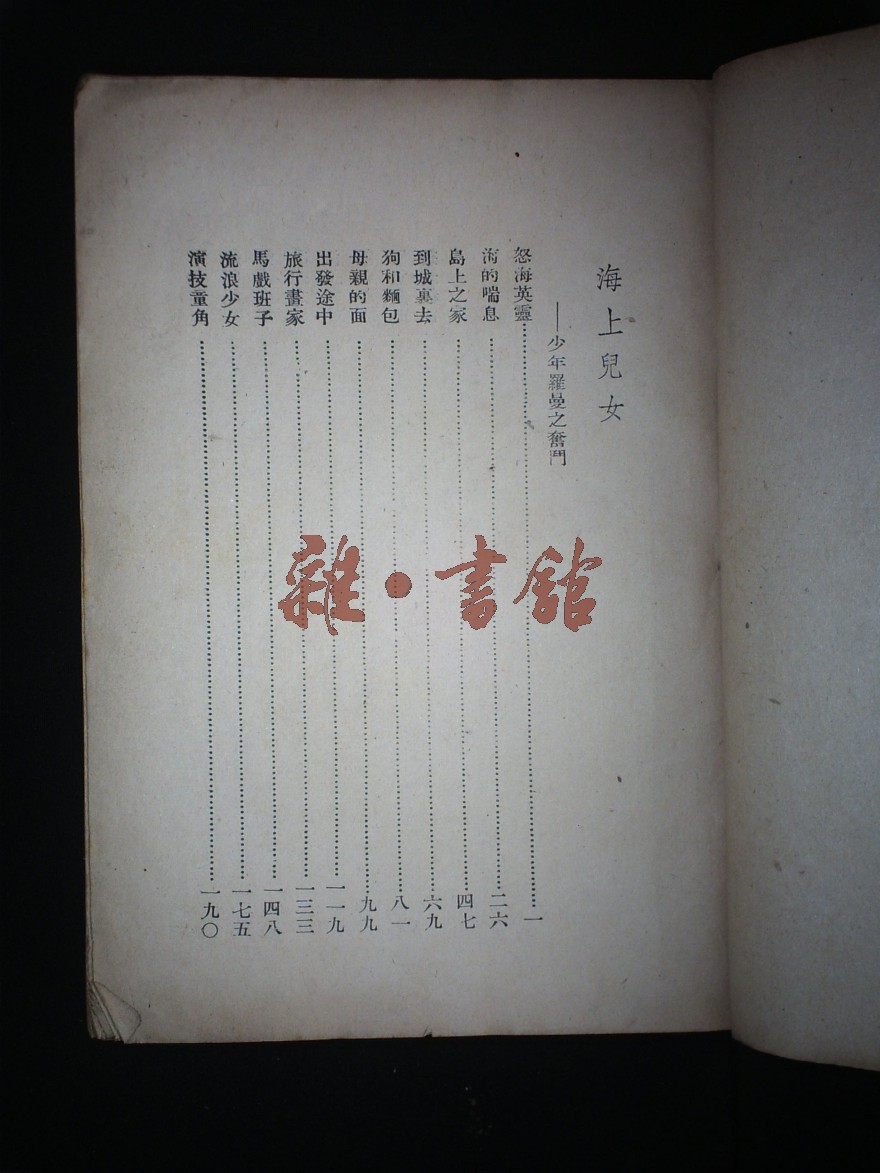 海上兒女
——少年羅曼之奮鬥
怒海英靈……一
海的喘息……二六
島上之家……四七
到城裏去……六九
狗和麵包……八一
母親的面……九九
出發途中……一一九
旅行畫家……一三三
馬戲班子……一四八
流浪少女……一七五
演技童角……一九〇
雜·書館